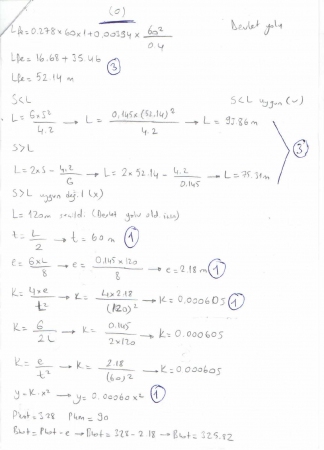 (a)
Devlet yolu
Lfe = 0.278 x 60 x 1 + 0.00394 x 60² / 0.4
Lfe = 16.68 + 35.46
Lfe = 52.14 m
③
S<L
S<L uygun (✓)
L = G x S² / 4.2 → L = 0.145 x (52.14)² / 4.2 → L = 93.86 m
S>L
③
L = 2xS - 4.2 / G → L = 2 x 52.14 - 4.2 / 0.145 → L = 75.31 m
S>L uygun değil (x)
L = 120m (Devlet yolu old için)
t = L / 2 → t = 60 m ①
e = G x L / 8 → e = 0.145 x 120 / 8 → e = 2.18 m ①
K = 4 x e / L² → K = 4 x 2.18 / (120)² → K = 0.000605 ①
K = G / 2L → K = 0.145 / 2 x 120 → K = 0.000605
K = e / t² → K = 2.18 / (60)² → K = 0.000605
y = K . x² → y = 0.00060 x² ①
Pkot = 128 Pkm = 90
Bkot = Pkot - e → Bkot = 128 - 2.18 → Bkot = 125.82